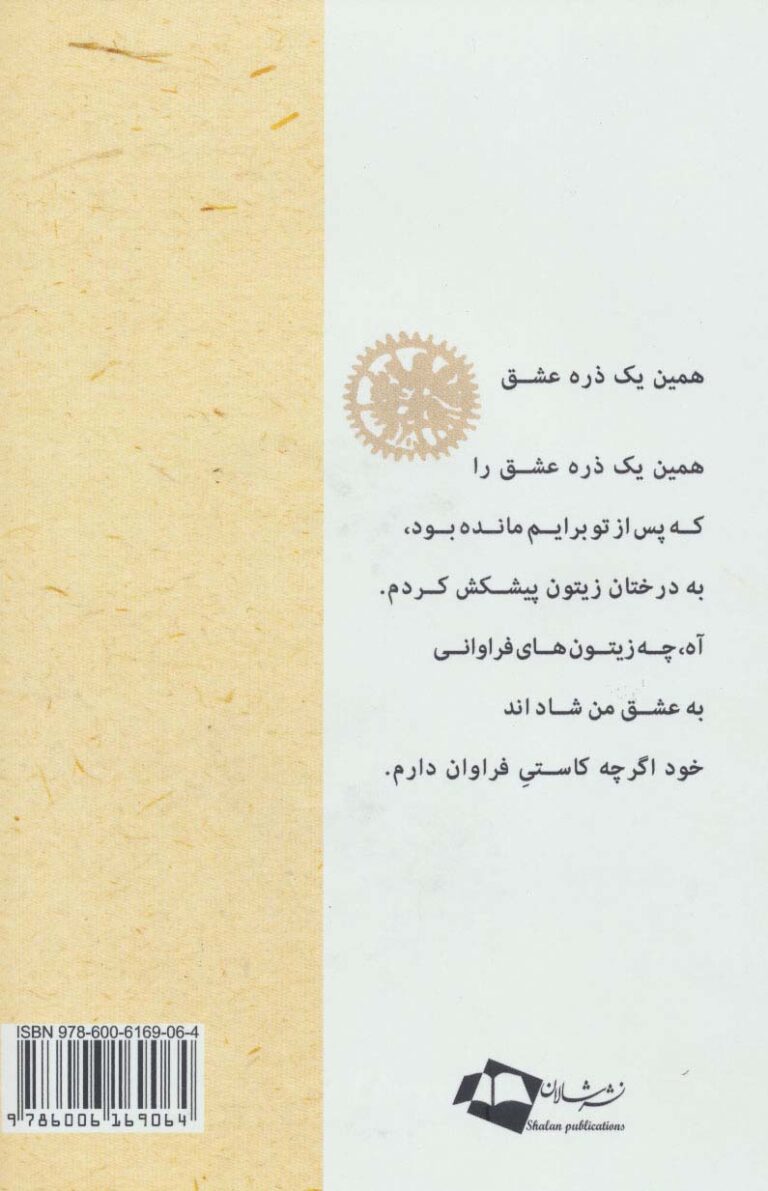 همین یک ذره عشق
همین یک ذره عشق را
که پس از تو برایم مانده بود،
به درختان زیتون پیشکش کردم.
آه، چه زیتون‌های فراوانی
به عشق من شاد اند
خود اگرچه کاستیِ فراوان دارم.
ISBN 978-600-6169-06-4
9 786006 169064
نشر شالان
Shalan publications